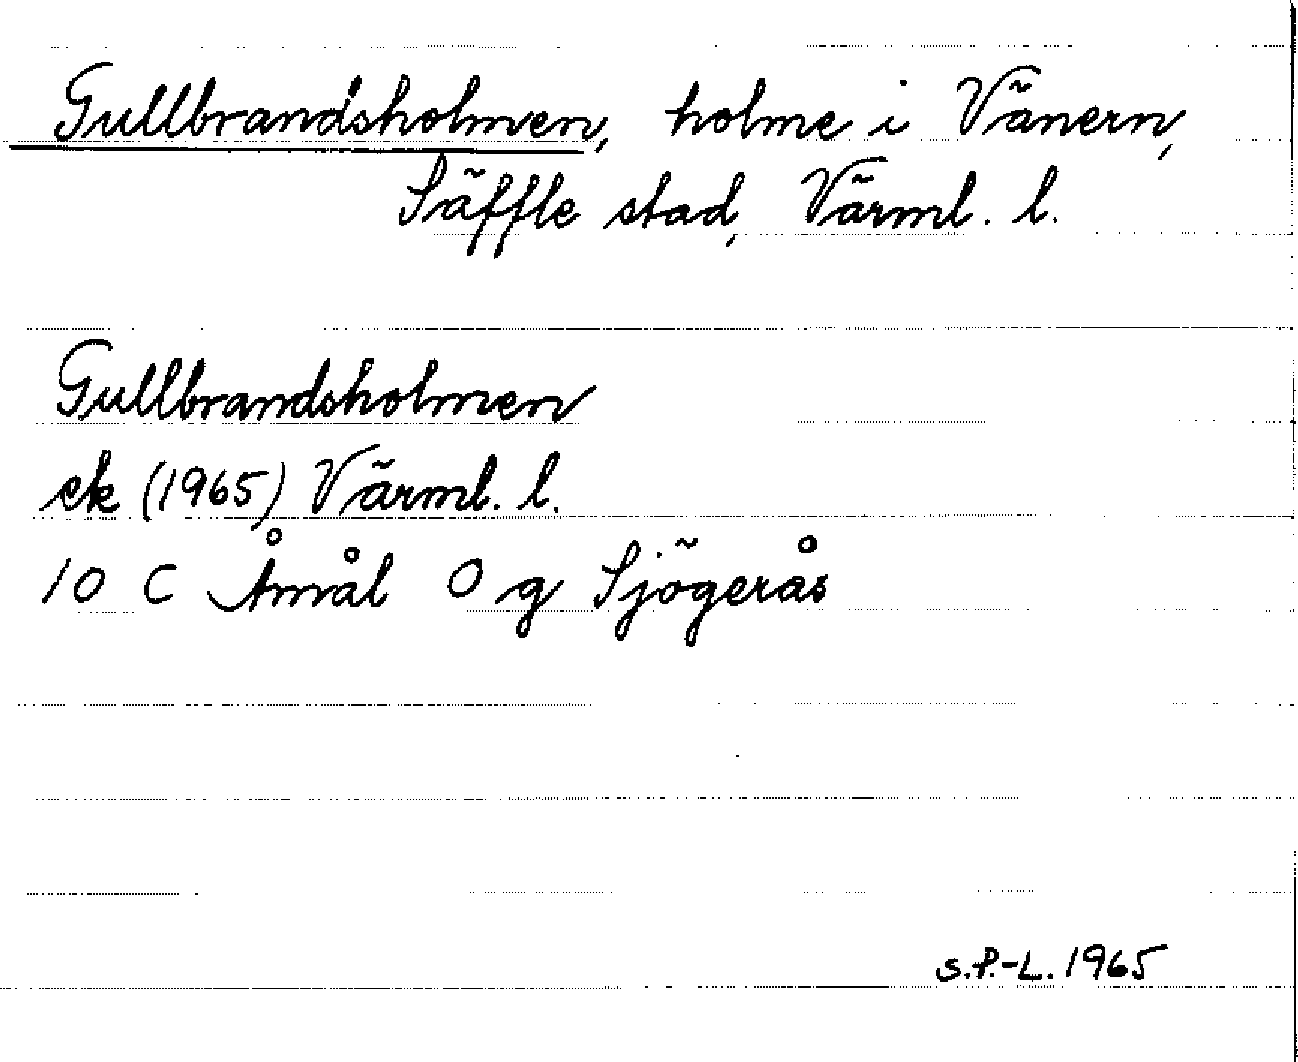 Gullbrandsholmen, holme i Vänern,
Säffle stad, Värml. l.
Gullbrandsholmen
ek (1965) Värml. l.
10 C Åmål O g Sjögerås
S.P.-L. 1965